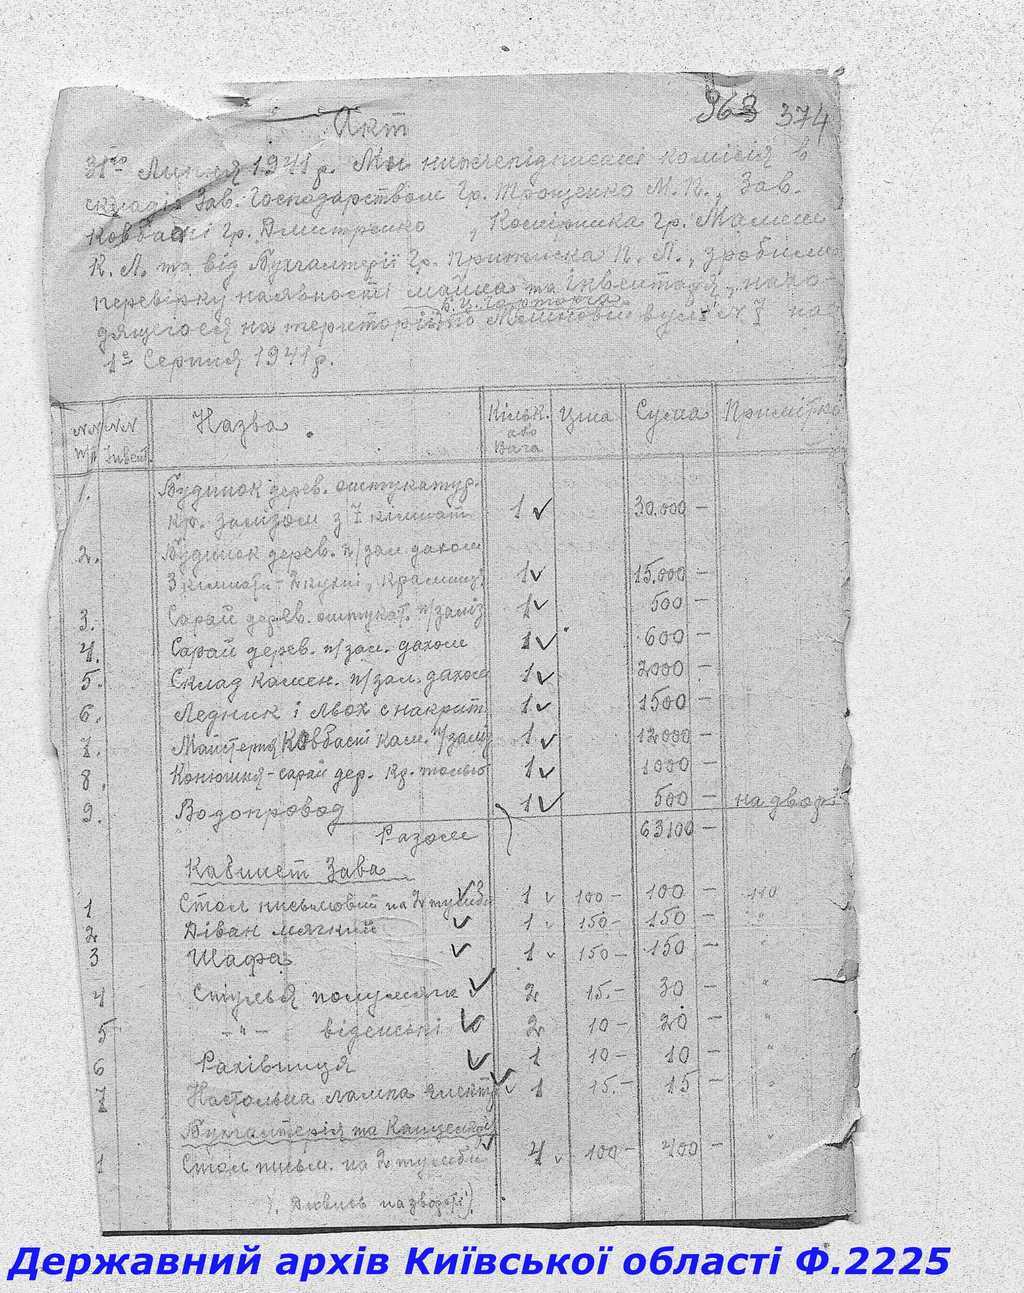 363 374
Акт
31го Липня 1941р. Ми нижчепідписані комісія в
складі Зав. Господарством Гр. Трощенко М.П., Зав.
Ковбасні Гр. Дмитренко, Комірника Гр.
К.Л. та від Бухгалтерії Гр. П.Л., зробили
перевірку наявності майна та Інвентаря, нахо-
дящегося на територій по вул. № 7 на
1е Серпня 1941р.
NN п/п NN Інвент. Назва Кільк. або Вага Ціна Сума Примітка
1. Будинок дерев. оштукатур.
кр. залізом з 7 кімнат 1 30.000 –
2. Будинок дерев. п/зал. дахом
3 кімнати – 2 кухні, 1 15.000 –
3. Сарай дерев. оштукат. п/заліз 1 500 –
4. Сарай дерев. п/зал. дахом 1 600 –
5. Склад камен. п/зал. дахом 1 2000 –
6. Ледник і льох с накрит. 1 1500 –
7. Майстерня Ковбасні кам. п/заліз 1 12000 –
8. Конюшня-сарай дер. кр. толью 1 1000 –
9. Водопровод 1 500 – на дворі
Разом 63100 –
Кабинет Зава
1 Стол письмовий на 2 тумби 1 100 – 100 –
2 Діван мягкий 1 150 – 150 – "
3 Шафа 1 150 – 150 – "
4 Стулья полумягк. 2 15. – 30 – "
5 – " – віденські 2 10 – 20 – "
6 Рахівниця 1 10 – 10 – "
7 Настольна лампа електр 1 15. – 15 – "
Бухгалтерія та Канцелярія
1 Стол письм. на 2 тумби 4 100 – 400 – "
Державний архів Київської області Ф.2225